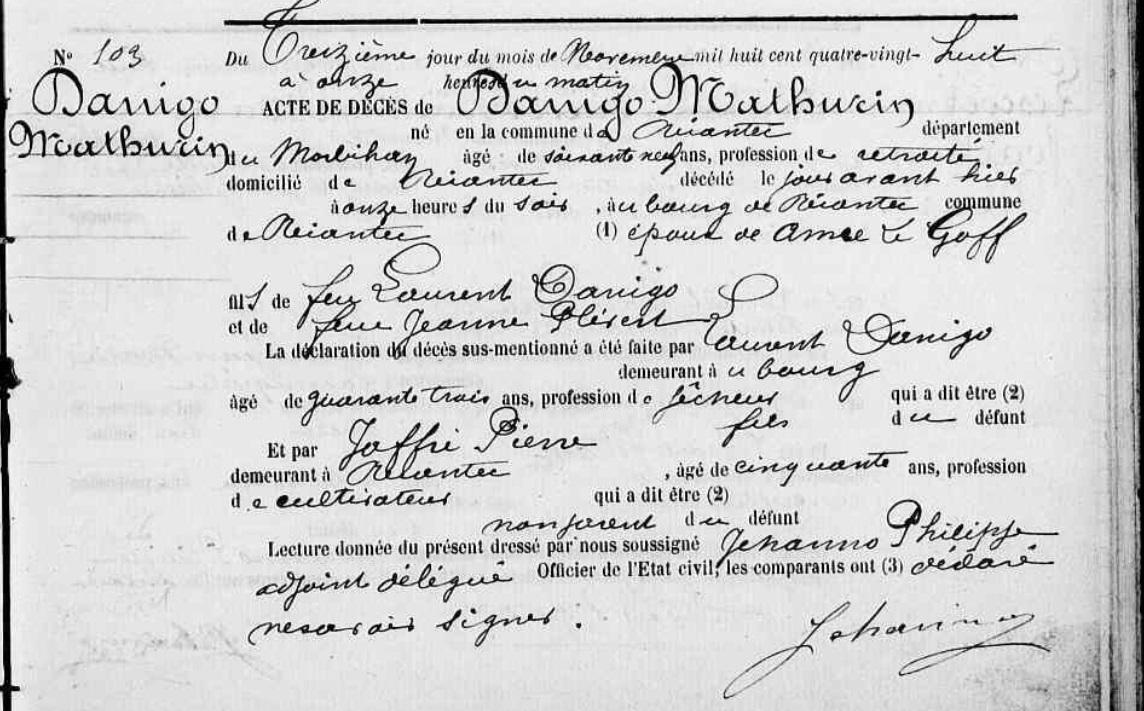 N° 103 Du Treizième jour du mois de Novembre mil huit cent quatre-vingt- huit
à onze heures du matin
Danigo Mathurin
ACTE DE DÉCÈS de Danigo Mathurin
né en la commune de Riantec département
du Morbihan âgé de soixante neuf ans, profession de retraité
domicilié de Riantec décédé le jour avant hier
à onze heures du soir, au bourg de Riantec commune
de Riantec (1) époux de Le Goff
fils de feu Laurent Danigo
et de feue Jeanne
La déclaration du décès sus-mentionné a été faite par Laurent Danigo
demeurant à u bourg
âgé de quarante trois ans, profession de pêcheur qui a dit être (2)
fils du défunt
Et par Joffré Pierre
demeurant à Riantec, âgé de cinquante ans, profession
de cultivateur qui a dit être (2)
non parent du défunt
Lecture donnée du présent dressé par nous soussigné Jehanno Philippe
adjoint délégué Officier de l'Etat civil, les comparants ont (3) déclaré
ne savoir signer.
Jehanno